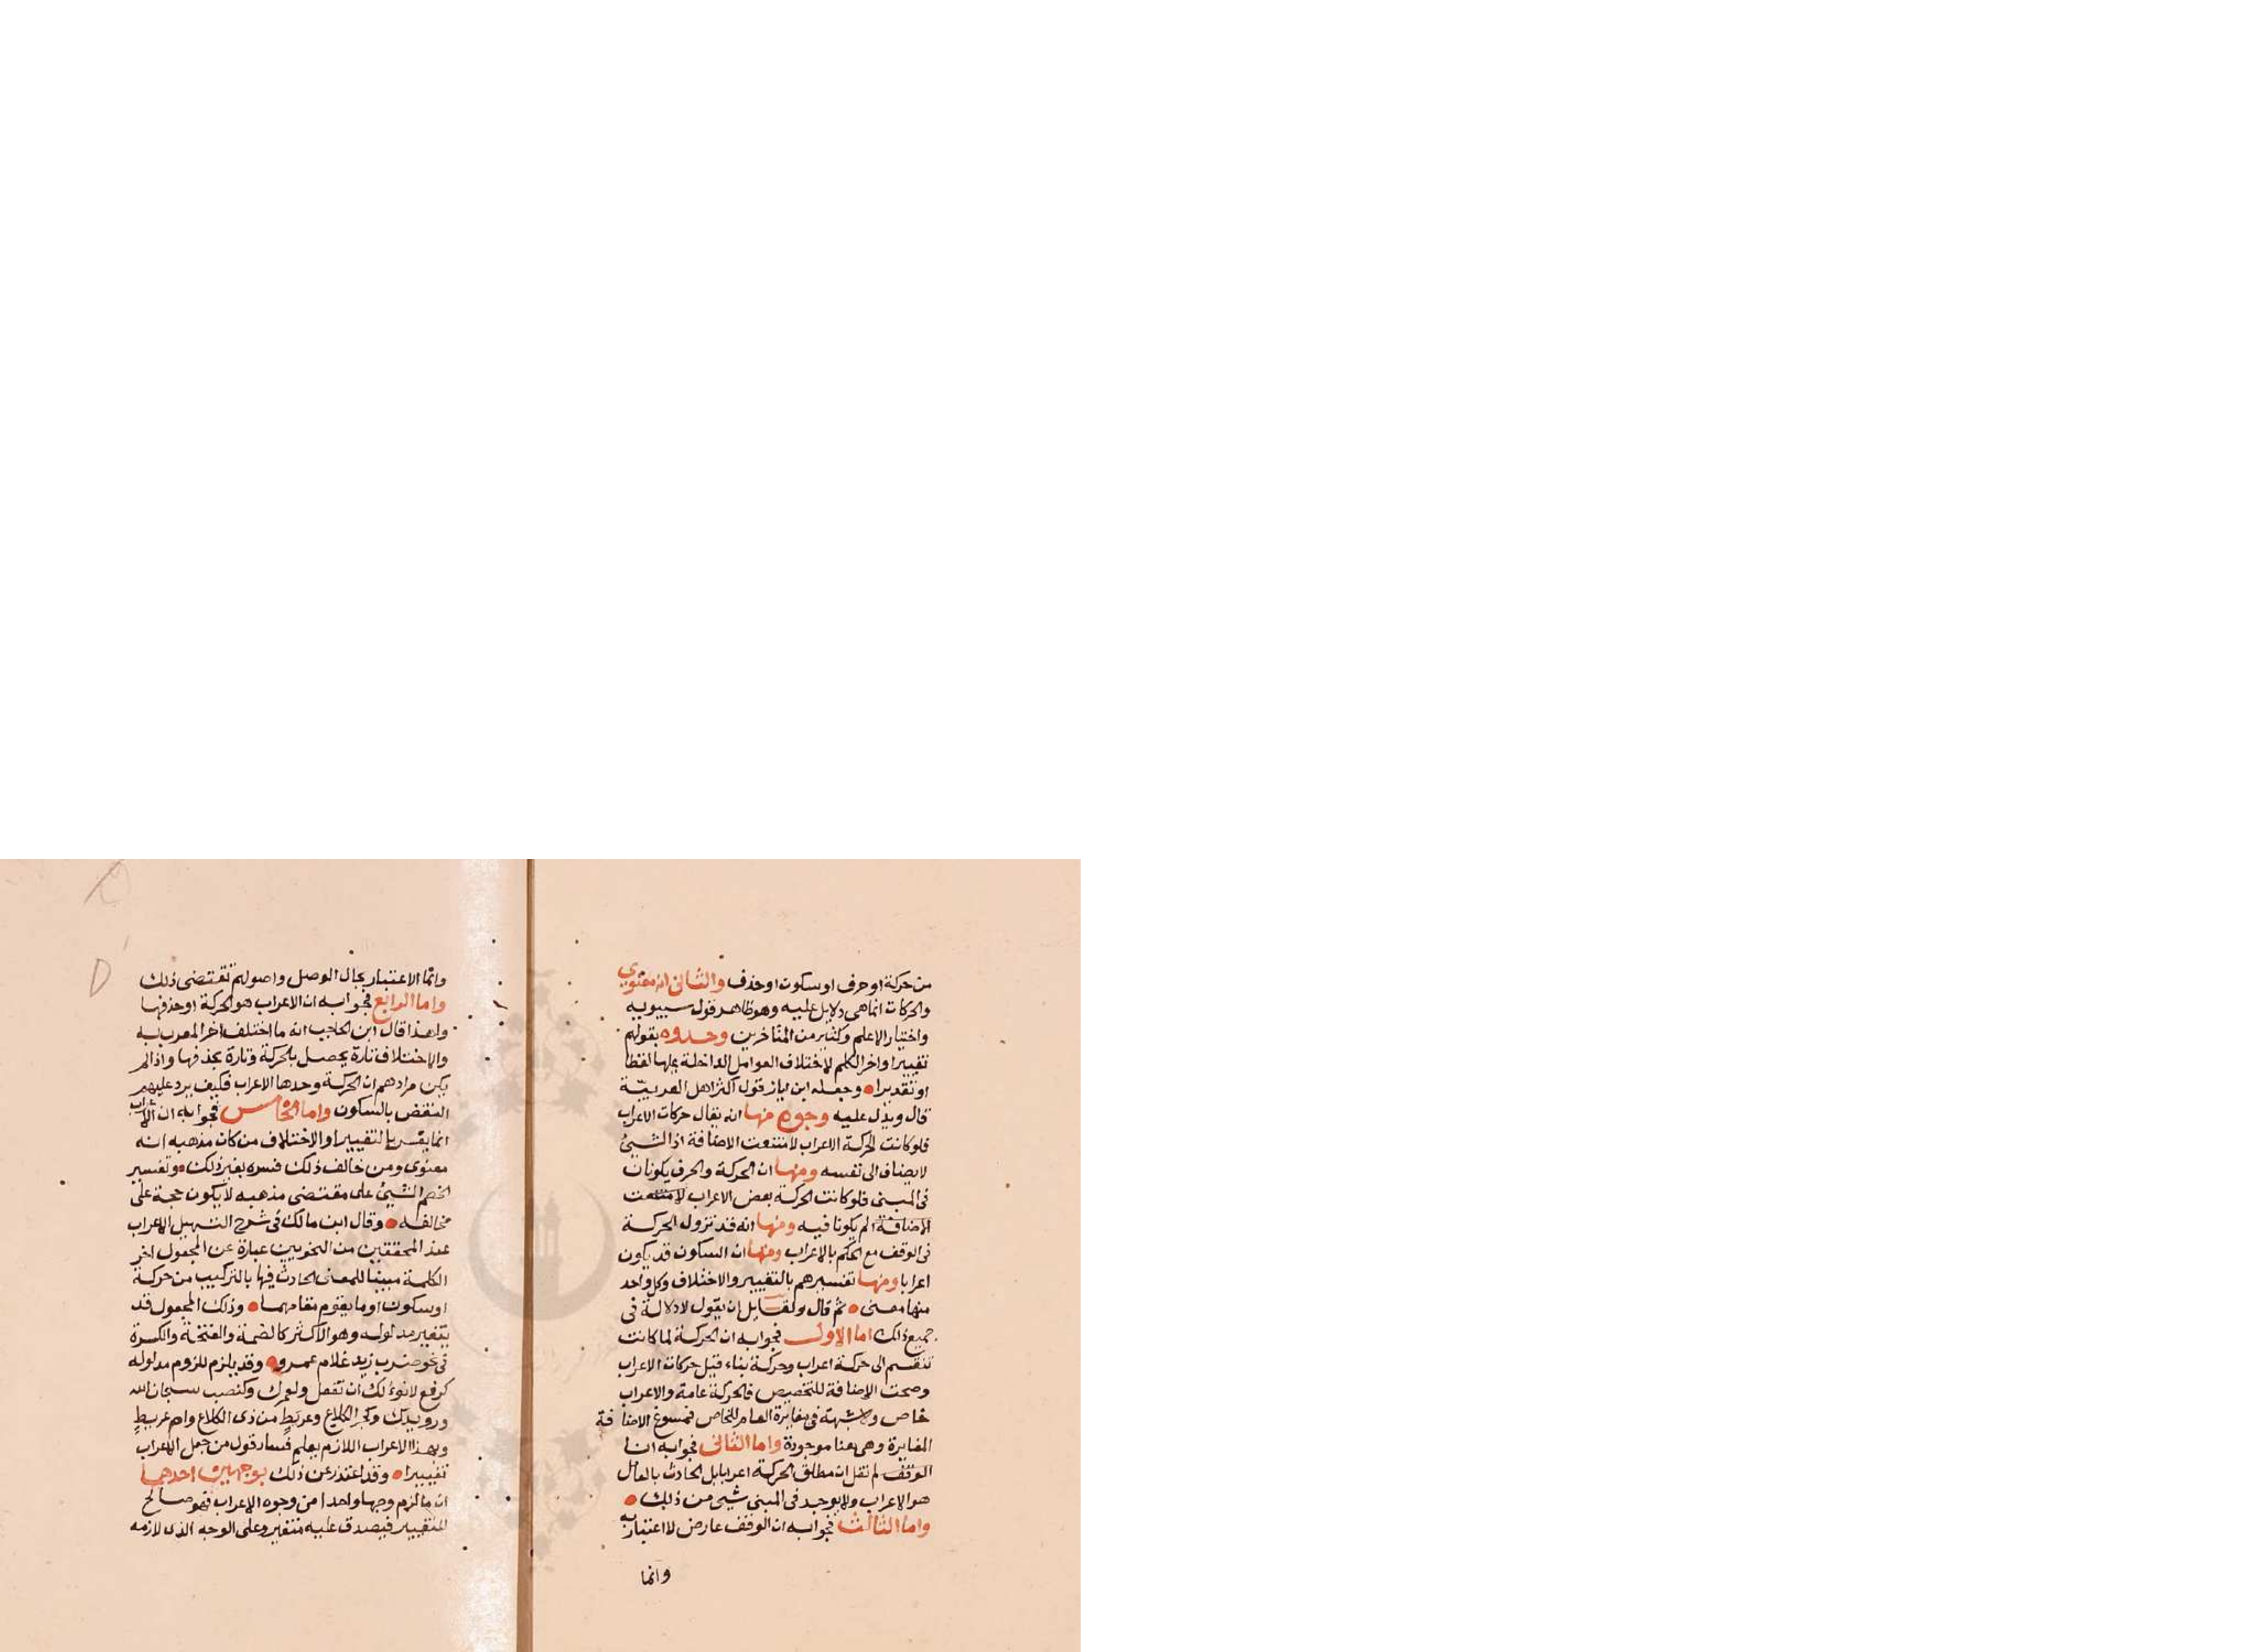 من حركة او حرف او سكون او حذف والثاني انه معنوي
والحركات انما هي دلايل عليه وهو ظاهر قول سيبويه
واختيار الاعلم وكثير من المتاخرين وحدوه بقولهم
تغيير اواخر الكلم لاختلاف العوامل الداخلة عليها لفظا
او تقديرا وجعله ابن اياز قول اكثر اهل العربية
قال ويدل عليه وجوه منها انه يقال حركات الاعراب
فلو كانت الحركة الاعراب لامتنعت الاضافة اذ الشيئ
لا يضاف الى نفسه ومنها ان الحركة والحرف يكونان
في المبنى فلو كانت الحركة بعض الاعراب لامتنعت
الاضافة لم يكونا فيه ومنها انه قد تزول الحركة
في الوقف مع الحكم بالاعراب ومنها ان السكون قد يكون
اعرابا ومنها تفسيرهم بالتغيير والاختلاف وكل واحد
منها معنى ثم قال ولقايل ان يقول لا دلالة في
جميع ذلك اما الاول فجوابه ان الحركة لما كانت
تنقسم الى حركة اعراب وحركة بناء قيل حركات الاعراب
وصحت الاضافة للتخصيص فالحركة عامة والاعراب
خاص ولا شبهة في مغايرة العام للخاص فمسوغ الاضافة
المغايرة وهي هنا موجودة واما الثاني فجوابه انا
لم نقل ان مطلق الحركة اعرابا بل الحادث بالعامل
هو الاعراب ولا يوجد في المبنى شيئ من ذلك
واما الثالث فجوابه ان الوقف عارض لا اعتبار به
وانما
وانما الاعتبار بحال الوصل واصولهم تقتضى ذلك
واما الرابع فجوابه ان الاعراب هو الحركة او حذفها
ولهذا قال ابن الحاجب انه ما اختلف اخر المعرب به
والاختلاف تارة يحصل بالحركة وتارة بحذفها واذا لم
يكن مرادهم ان الحركة وحدها الاعراب فكيف يرد عليهم
النقض بالسكون واما الخامس فجوابه ان الاعراب
انما يفسر بالتغيير او الاختلاف من كان مذهبه انه
معنوى ومن خالف ذلك فسره بغير ذلك وتفسير
الخصم الشيئ على مقتضى مذهبه لا يكون حجة على
مخالفه وقال ابن مالك في شرح التسهيل الاعراب
عند المحققين من النحويين عبارة عن المجعول اخر
الكلمة مبينا للمعنى الحادث فيها بالتركيب من حركة
او سكون او ما يقوم مقامهما وذلك المجعول قد
يتغير مدلوله وهو الاكثر كالضمة والفتحة والكسرة
في نحو ضرب زيد غلام عمرو وقد يلزم للزوم مدلوله
كرفع لا نولك ان تفعل ولعمرك وكنصب سبحان الله
ورويدك وكجر الكلاع وعريط من ذى الكلاع وام عريط
وبهذا الاعراب اللازم يعلم فساد قول من جعل الاعراب
تغييرا وقد اعتذر عن ذلك بوجهين احدهما
ان ما لازم وجها واحدا من وجوه الاعراب فهو صالح
للتغيير فيصدق عليه متغير وعلى الوجه الذى لازمه